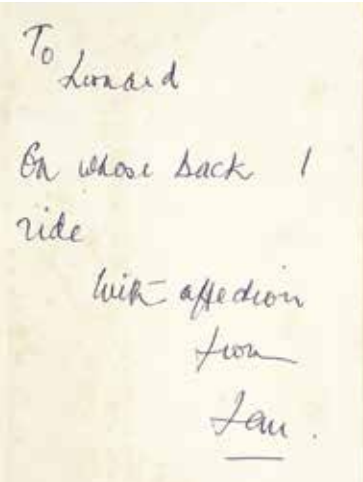 To
Leonard
On whose back I
ride
With affection
from
Ian.